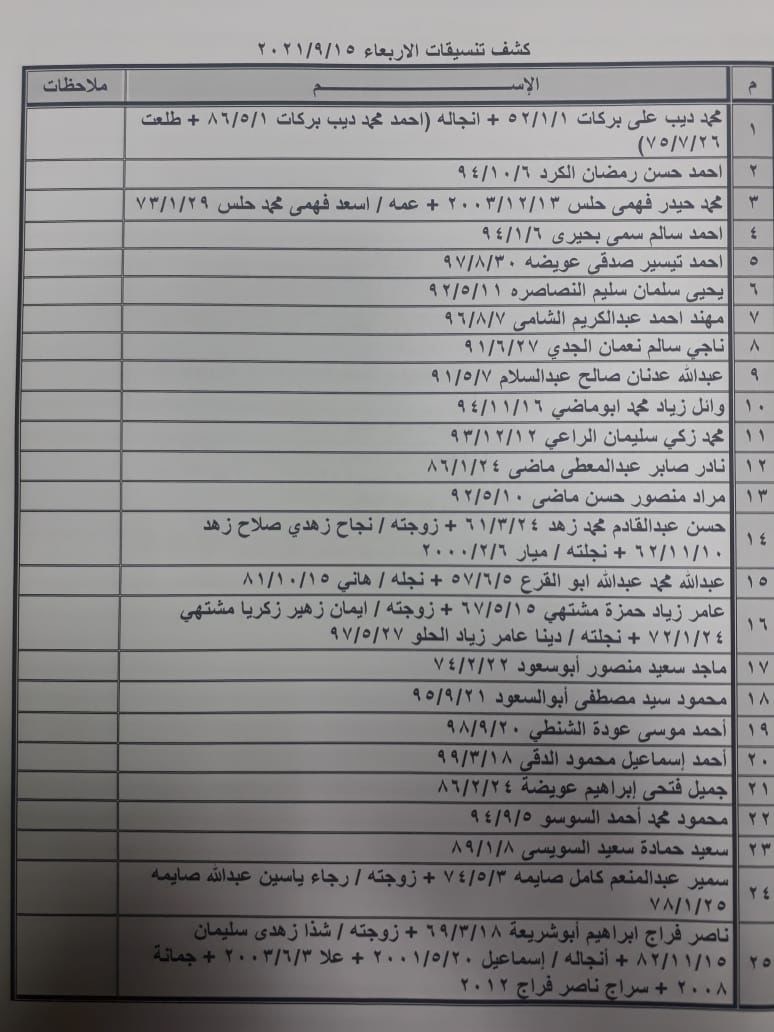 كشف تنسيقات الاربعاء ٢٠٢١/٩/١٥
م الإســــــــم ملاحظات
١ محمد ديب على بركات ٥٢/١/١ + انجاله (احمد محمد ديب بركات ٨٦/٥/١ + طلعت
٧٥/٧/٢٦)
٢ احمد حسن رمضان الكرد ٩٤/١٠/٦
٣ محمد حيدر فهمى حلس ٢٠٠٣/١٢/١٣ + عمه / اسعد فهمى محمد حلس ٧٣/١/٢٩
٤ احمد سالم سمى بحيرى ٩٤/١/٦
٥ احمد تيسير صدقى عويضه ٩٧/٨/٣٠
٦ يحيى سلمان سليم النصاصره ٩٢/٥/١١
٧ مهند احمد عبدالكريم الشامى ٩٦/٨/٧
٨ ناجي سالم نعمان الجدي ٩١/٦/٢٧
٩ عبدالله عدنان صالح عبدالسلام ٩١/٥/٧
١٠ وائل زياد محمد ابوماضي ٩٤/١١/١٦
١١ محمد زكي سليمان الراعي ٩٣/١٢/١٢
١٢ نادر صابر عبدالمعطى ماضى ٨٦/١/٢٤
١٣ مراد منصور حسن ماضى ٩٢/٥/١٠
١٤ حسن عبدالقادم محمد زهد ٦١/٣/٢٤ + زوجته / نجاح زهدي صلاح زهد
٦٢/١١/١٠ + نجلته / ميار ٢٠٠٠/٢/٦
١٥ عبدالله محمد عبدالله ابو القرع ٥٧/٦/٥ + نجله / هاني ٨١/١٠/١٥
١٦ عامر زياد حمزة مشتهي ٦٧/٥/١٥ + زوجته / ايمان زهير زكريا مشتهي
٧٢/١/٢٤ + نجلته / دينا عامر زياد الحلو ٩٧/٥/٢٧
١٧ ماجد سعيد منصور أبوسعود ٧٤/٢/٢٢
١٨ محمود سيد مصطفى أبوالسعود ٩٥/٩/٢١
١٩ أحمد موسى عودة الشنطي ٩٨/٩/٢٠
٢٠ أحمد إسماعيل محمود الدقى ٩٩/٣/١٨
٢١ جميل فتحى إبراهيم عويضة ٨٦/٢/٢٤
٢٢ محمود محمد أحمد السوسو ٩٤/٩/٥
٢٣ سعيد حمادة سعيد السويسى ٨٩/١/٨
٢٤ سمير عبدالمنعم كامل صايمه ٧٤/٥/٣ + زوجته / رجاء ياسين عبدالله صايمه
٧٨/١/٢٥
٢٥ ناصر فراج ابراهيم أبوشريعة ٦٩/٣/١٨ + زوجته / شذا زهدى سليمان
٨٢/١١/١٥ + أنجاله / إسماعيل ٢٠٠١/٥/٢٠ + علا ٢٠٠٣/٦/٣ + جمانة
٢٠٠٨ + سراج ناصر فراج ٢٠١٢